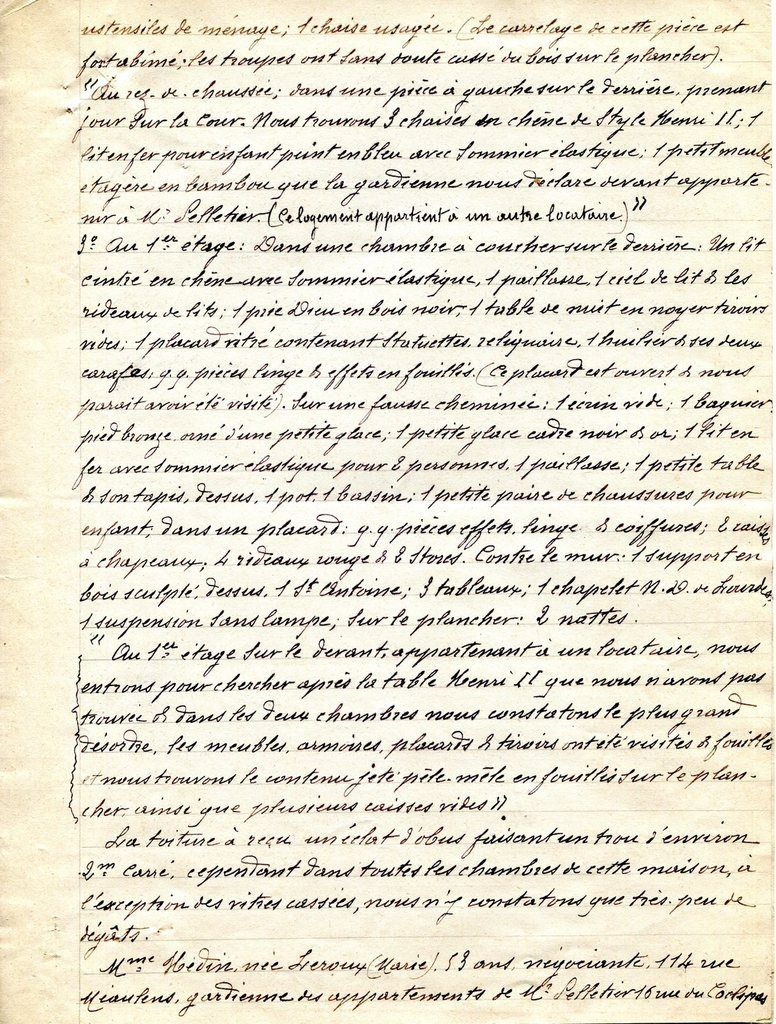 ustensiles de ménage; 1 chaise usagée. (Le carrelage de cette pièce est
fort abimé; les troupes ont sans doute cassé du bois sur le plancher).
"Au rez-de-chaussée; dans une pièce à gauche sur le derrière, prenant
jour sur la Cour. Nous trouvons 3 chaises en chêne de Style Henri II; 1
lit en fer pour enfant peint en bleu avec sommier élastique; 1 petit meuble
étagère en bambou que la gardienne nous déclare devant apparte-
nir à Mr Pelletier (Ce logement appartient à un autre locataire)"
3º Au 1er étage: Dans une chambre à coucher sur le derrière: Un lit
cintré en chêne avec sommier élastique, 1 paillasse, 1 ciel de lit & les
rideaux de lits; 1 prie Dieu en bois noir, 1 table de nuit en noyer tiroirs
vides; 1 placard vitré contenant statuettes, reliquaire, 1 huilier & ses deux
carafes; q.q. pièces linge & effets en fouillis. (Ce placard est ouvert & nous
parait avoir été visité). Sur une fausse cheminée: 1 écrin vide; 1 baguier
pied bronze orné d'une petite glace; 1 petite glace cadre noir & or; 1 lit en
fer avec sommier élastique pour 2 personnes, 1 paillasse; 1 petite table
& son tapis, dessus, 1 pot, 1 bassin; 1 petite paire de chaussures pour
enfant, dans un placard: q.q. pièces effets, linge & coiffures; 2 caisses
à chapeaux; 4 rideaux rouge & 2 Stores. Contre le mur: 1 support en
bois sculpté, dessus, 1 St Antoine; 3 tableaux; 1 chapelet N.D. de Lourdes;
1 suspension sans lampe; Sur le plancher: 2 nattes.
"Au 1er étage sur le devant, appartenant à un locataire, nous
entrons pour chercher après la table Henri II que nous n'avons pas
trouvée & dans les deux chambres nous constatons le plus grand
désordre, les meubles, armoires, placards & tiroirs ont été visités & fouillés
et nous trouvons le contenu jeté pêle-mêle en fouillis sur le plan-
cher, ainsi que plusieurs caisses vides"
La toiture à reçu un éclat d'obus faisant un trou d'environ
2m carré, cependant dans toutes les chambres de cette maison, à
l'exception des vitres cassées, nous n'y constatons que très peu de
dégâts.
Mme Hédin, née Leroux (Marie), 53 ans, négociante, 114 rue
Méaulens, gardienne des appartements de Mr Pelletier 16 rue du